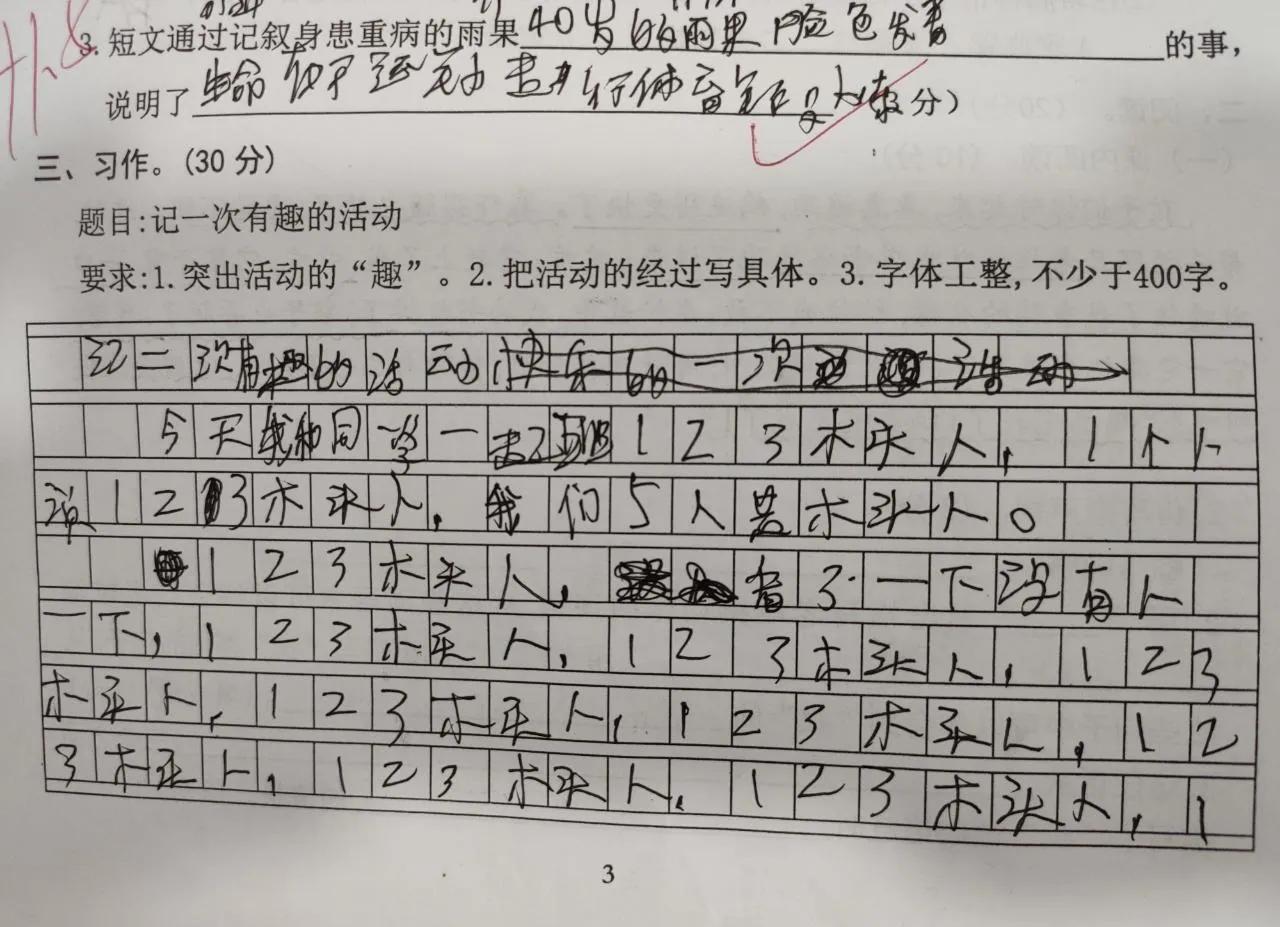 3.短文通过记叙身患重病的雨果40岁的雨果脸色发着的事，
说明了生命在于运动进行体育锻炼(3分)
三、习作。(30分)
题目:记一次有趣的活动
要求:1.突出活动的“趣”。2.把活动的经过写具体。3.字体工整,不少于400字。
记一次有趣的活动快乐的一次活动
今天我和同学一起玩123木头人,1个人
说123木头人,我们5人是木头人。
123木头人,看了一下没有人
一下,123木头人,123木头人,123
木头人,123木头人,123木头人,12
3木头人,123木头人,123木头人,1
3